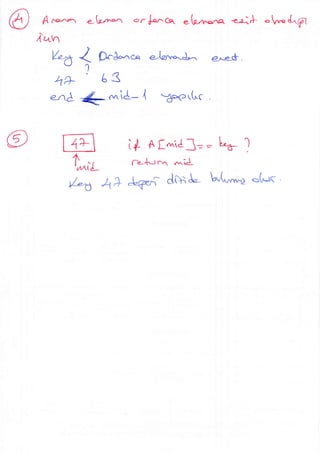 ④ Aranan eleman ortanca elemana eşit olmadığı
için
Key < Ortanca elemandan evet.
?
47 63
end ← mid-1 yapılır.
⑤ 47 if A[mid] == key ?
↑
mid return mid
Key 47 değeri dizide bulunmuş olur.